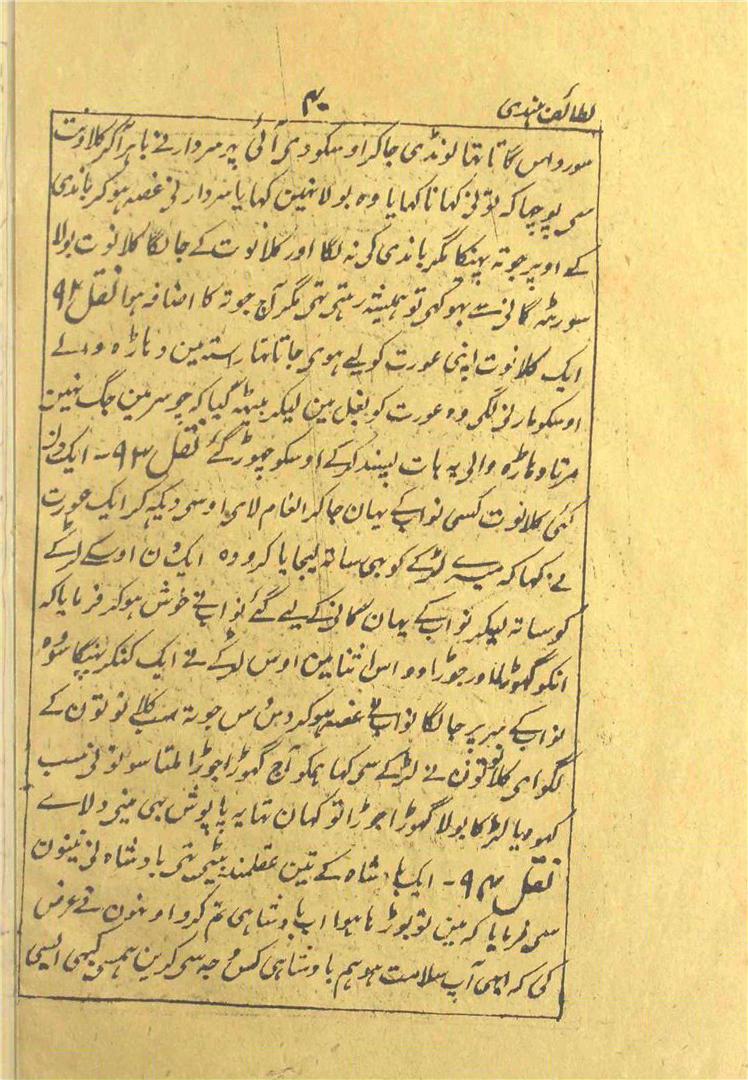 لطائف ہندی
۴۰
سورداس گاتا تہا لونڈی جاکر اوسکو دی آئی پہر سردار نے باہر آکر کلانوت
سی پوچہا کہ تو نی کہانا کہایا وہ بولا نہین کہایا سردار نی غصہ ہوکر باندی
کے اوپر جوتہ پہینکا مگر باندی کی نہ لگا اور کلانوت کے جا لگا کلانوت بولا
سورٹہہ گانی سے بہوکہی تو ہمیشہ رہتی تہی مگر آج جوتہ کا اضافہ ہوا نقل ۹۲
ایک کلانوت اپنی عورت کو لیے ہوی جاتا تہا رستہ مین دہاڑہ والے
اوسکو مارنی لگی وہ عورت کو بغل مین لیکر بیٹہہ گیا کہ چوسر مین جگ نہین
مرتا دہاڑہ والی یہ بات پسند کرکے اوسکو چہوڑ گئے نقل ۹۳ - ایک دن
کئی کلانوت کسی نواب کے یہان جاکر انعام لای اوسی دیکہہ کر ایک عورت
نے کہا کہ میرے لڑکے کو بہی ساتہ لیجایا کرو وہ ایک دن اوسکے لڑکے
کو ساتہ لیکر نواب کے یہان گانی کے لیے گئے نواب نے خوش ہوکر فرمایا کہ
انکو گہوڑا اور جوڑا دو اس اثنا مین اوس لڑکے نے ایک کنکر پہینکا سو وہ
نواب کے سر پر جا لگا نواب نے غصہ ہوکر دس دس جوتہ سب کلانوتون کے
لگوای کلانوتون نے لڑکے سی کہا ہمکو آج گہوڑا جوڑا ملتا سو تو نی سب
کہو دیا لڑکا بولا گہوڑا جوڑا تو کہان تہا یہ پاپوش بہی مینی دلاے
نقل ۹۴ - ایک بادشاہ کے تین عقلمند بیٹی تہی بادشاہ نی تینون
سی فرمایا کہ مین تو بوڑہا ہوا اب بادشاہی تم کرو اونہون نے عرض
کی کہ ابہی آپ سلامت ہو ہم بادشاہی کس وجہ سی کرین ہمسی کبہی ایسی